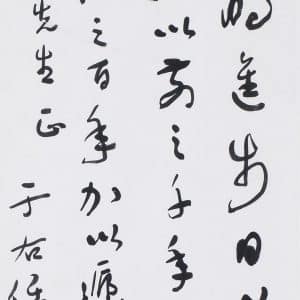 進步日
以前之千年
之百年加以
先生正 于右任